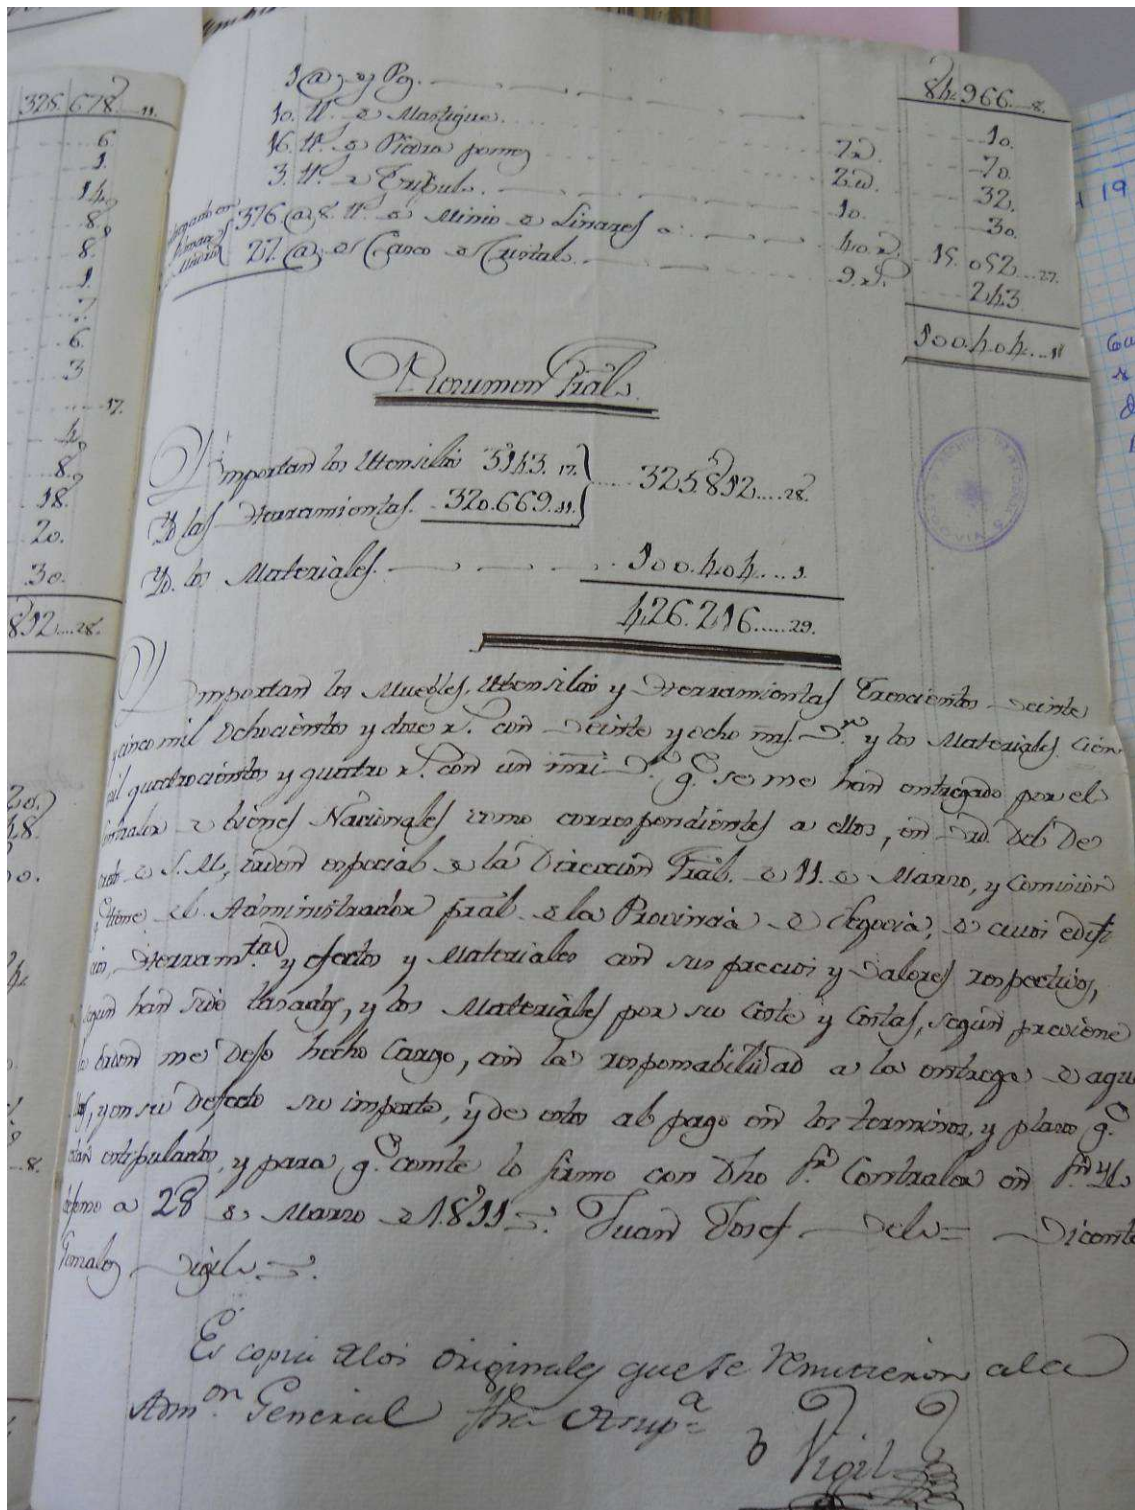 325.678....11.
6.
1.
14.
8.
8.
1.
7.
6.
3
....17.
4.
8.
18.
20.
30.
812....28.
84.966....8.
1 @ de Pez. 10.
10. tt. de Mastique. 7 r. 70.
16. tt. de Piedra pomez 2 r. 32.
3. tt. de Tripul. 10. 30.
376 @ 8. tt. de Minio de Linares a 40 r. 15.052....27.
27. @ de Casco de Cristal. 9 r. 243
100.404...1
Resumen Gral.
Importan los Utensilios 5143. 17. } 325.812....28.
Yd. las Herramientas. 320.669. 11.
Yd. los Materiales. 100.404....1.
426.216.....29.
Importan los Muebles, Utensilios y Herramientas Trescientos veinte
y cinco mil Ochocientos y doce r. con veinte y ocho ms. Vn. y los Materiales cien
mil quatrocientos y quatro r. con un mri Vn. q.e se me han entregado por el
Contralor de bienes Nacionales como correspondientes a ellos, en vud. del De
creto de S. M., orden especial de la Direccion Gral. de 11. de Marzo, y Comision
q.e tiene el Administrador pral. de la Provincia de Segovia, de cuios edifi
cios, Herram.tas y efectos y Materiales con sus precios y valores respectivos,
segun han sido tasados, y los Materiales por su Coste y Costas, segun previene
la orden me dejo hecho Cargo, con la responsabilidad a la entrega de aque
llos, y en su defecto su importe, y de estos al pago en los terminos, y plazo q.e
estan estipulados, y para q.e conste lo firmo con Dho S.r Contralor en S.n Yl
defonso a 28 de Marzo de 1.811 =. Juan Josef Vela = Vicente
Gonzalez Vigil =.
Es copia de los originales que se remitieron a la
Adm.on General fha Ut sup.a
Vigil